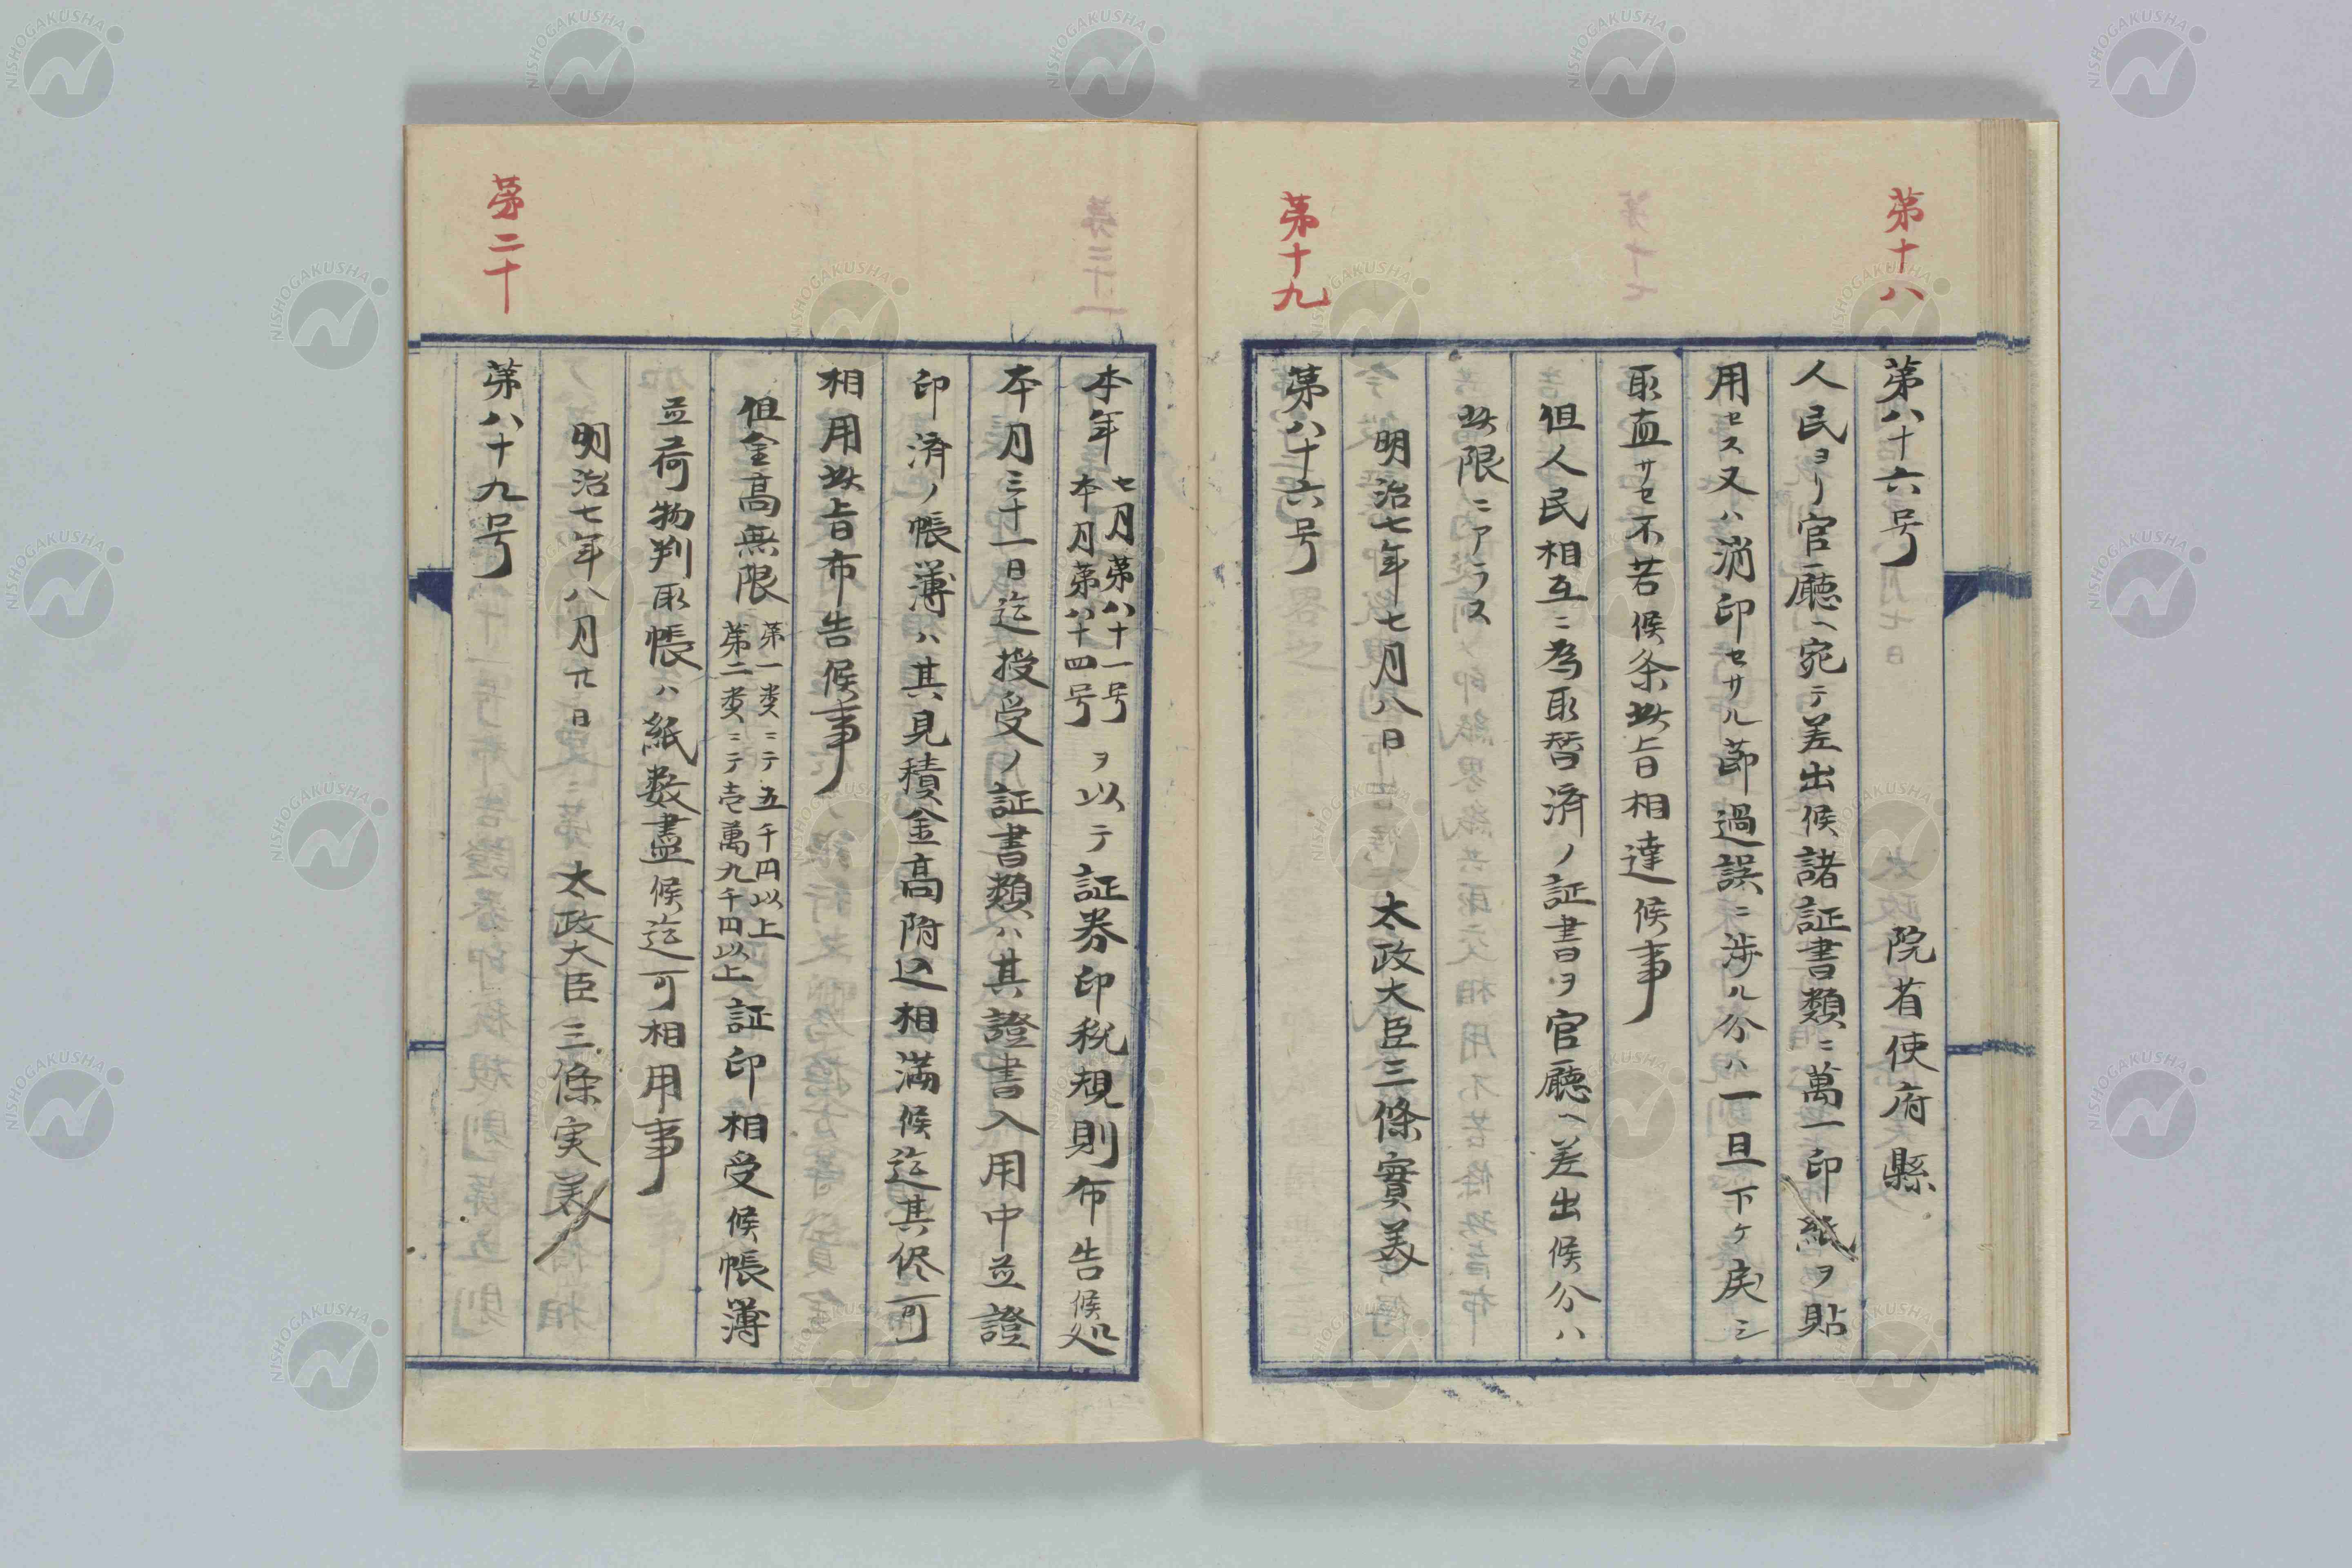 第十八
第八十六号　院省使府縣
人民ヨリ官廳ヘ宛テ差出候諸証書類ニ萬一印紙ヲ貼
用セス又ハ消印セサル莭過誤ニ渉ル分ハ一旦下ケ戻シ
取直サセ不苦候条此旨相達候事
但人民相互ニ為取替済ノ証書ヲ官廳ヘ差出候分ハ
此限ニアラス
明治七年七月八日　太政大臣三條實美
第十九
第八十六号
本年七月第八十一号
本月第八十四号ヲ以テ証券印税規則布告候処
本月三十一日迄授受ノ証書類ハ其證書入用中並證
印済ノ帳薄ハ其見積金高附込相満候迄其侭可
相用此旨布告候事
但金高無限第一類ニテ五千円以上
第二類ニテ壱萬九千円以上証印相受候帳薄
並荷物判取帳ハ紙数盡候迄可相用事
明治七年八月廿日　太政大臣三條実美
第二十
第八十九号
NISHOGAKUSHA